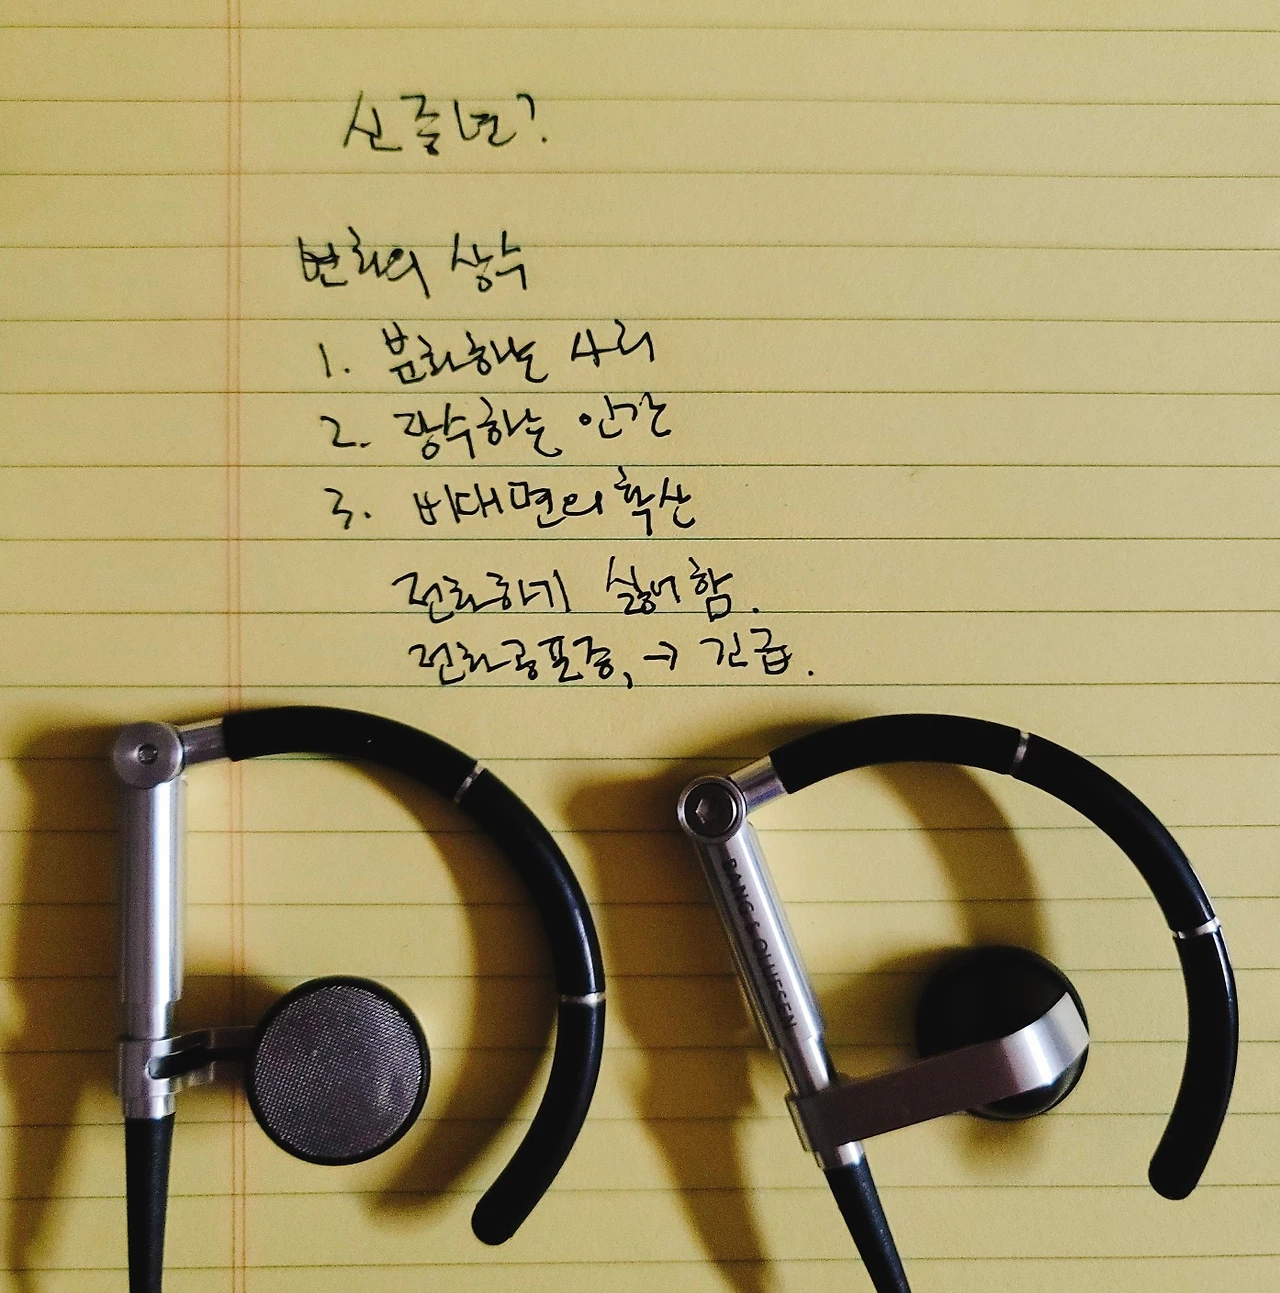 신중년?
변화의 상수
1. 분화하는 사회
2. 장수하는 인간
3. 비대면의 확산
전화하기 싫어함.
전화공포증, → 긴급.
BANG & OLUFSEN